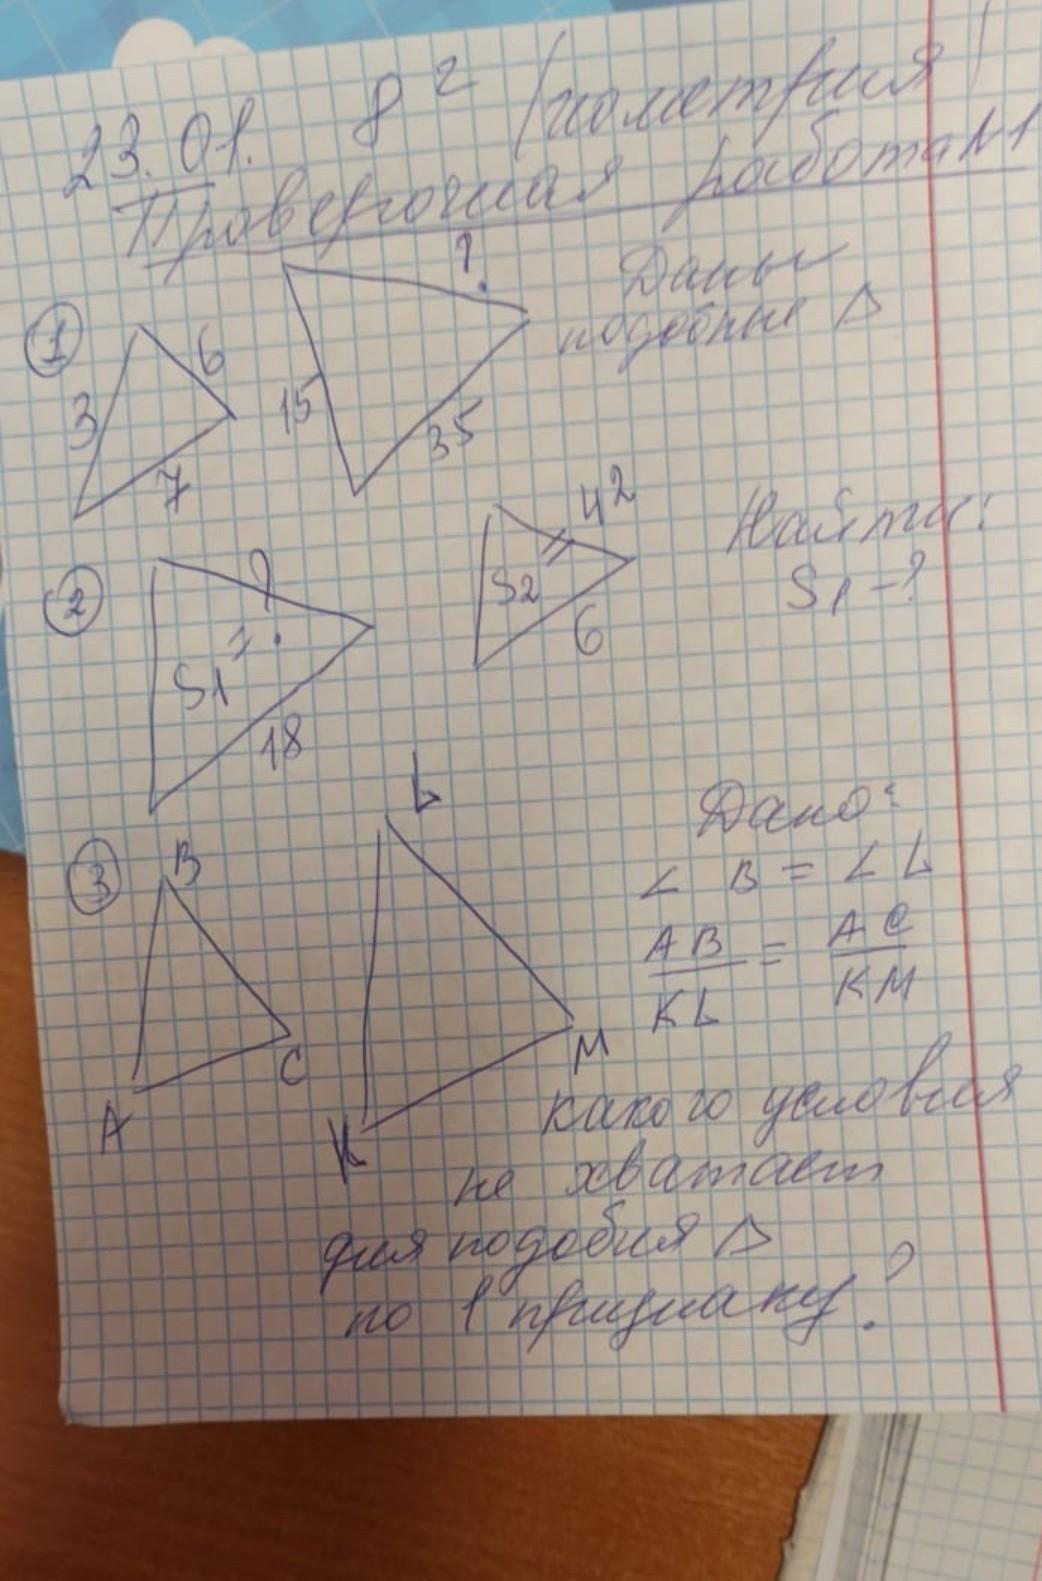 23.01. 8г (геометрия)
Проверочная работа №1
① 3 6 7 15 ? 35 Даны
подобные Δ
② S1 = ? 18 S2 = 42 6 Найти:
S1 - ?
③ A B C K L M Дано:
∠ B = ∠ L
AB/KL = AC/KM
какого условия
не хватает
для подобия Δ
по 1 признаку?